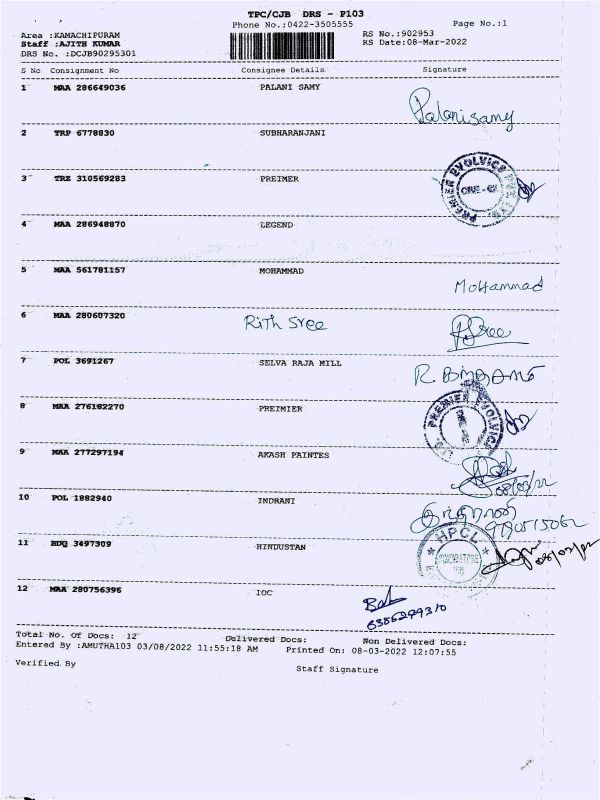 TPC/CJB DRS - P103
Phone No.:0422-3505555 Page No.:1
Area :KAMACHIPURAM RS No.:902953
Staff :AJITH KUMAR RS Date:08-Mar-2022
DRS No. :DCJB90295301
S No Consignment No Consignee Details Signature
1 MAA 286649036 PALANI SAMY
Palanisamy
2 TRP 6778830 SUBHARANJANI
3 TRZ 310569283 PREIMER
PREMIER EVOLVICS
4 MAA 286948870 LEGEND
5 MAA 561781157 MOHAMMAD
Mohammad
6 MAA 280607320 Rith Sree
7 POL 3691267 SELVA RAJA MILL
8 MAA 276182270 PREIMIER
PREMIER EVOLVICS
9 MAA 277297194 AKASH PAINTES
10 POL 1882940 INDRANI
11 BDQ 3497309 HINDUSTAN
HPCL
12 MAA 280756396 IOC
Total No. Of Docs: 12 Delivered Docs: Non Delivered Docs:
Entered By :AMUTHA103 03/08/2022 11:55:18 AM Printed On: 08-03-2022 12:07:55
Verified By Staff Signature